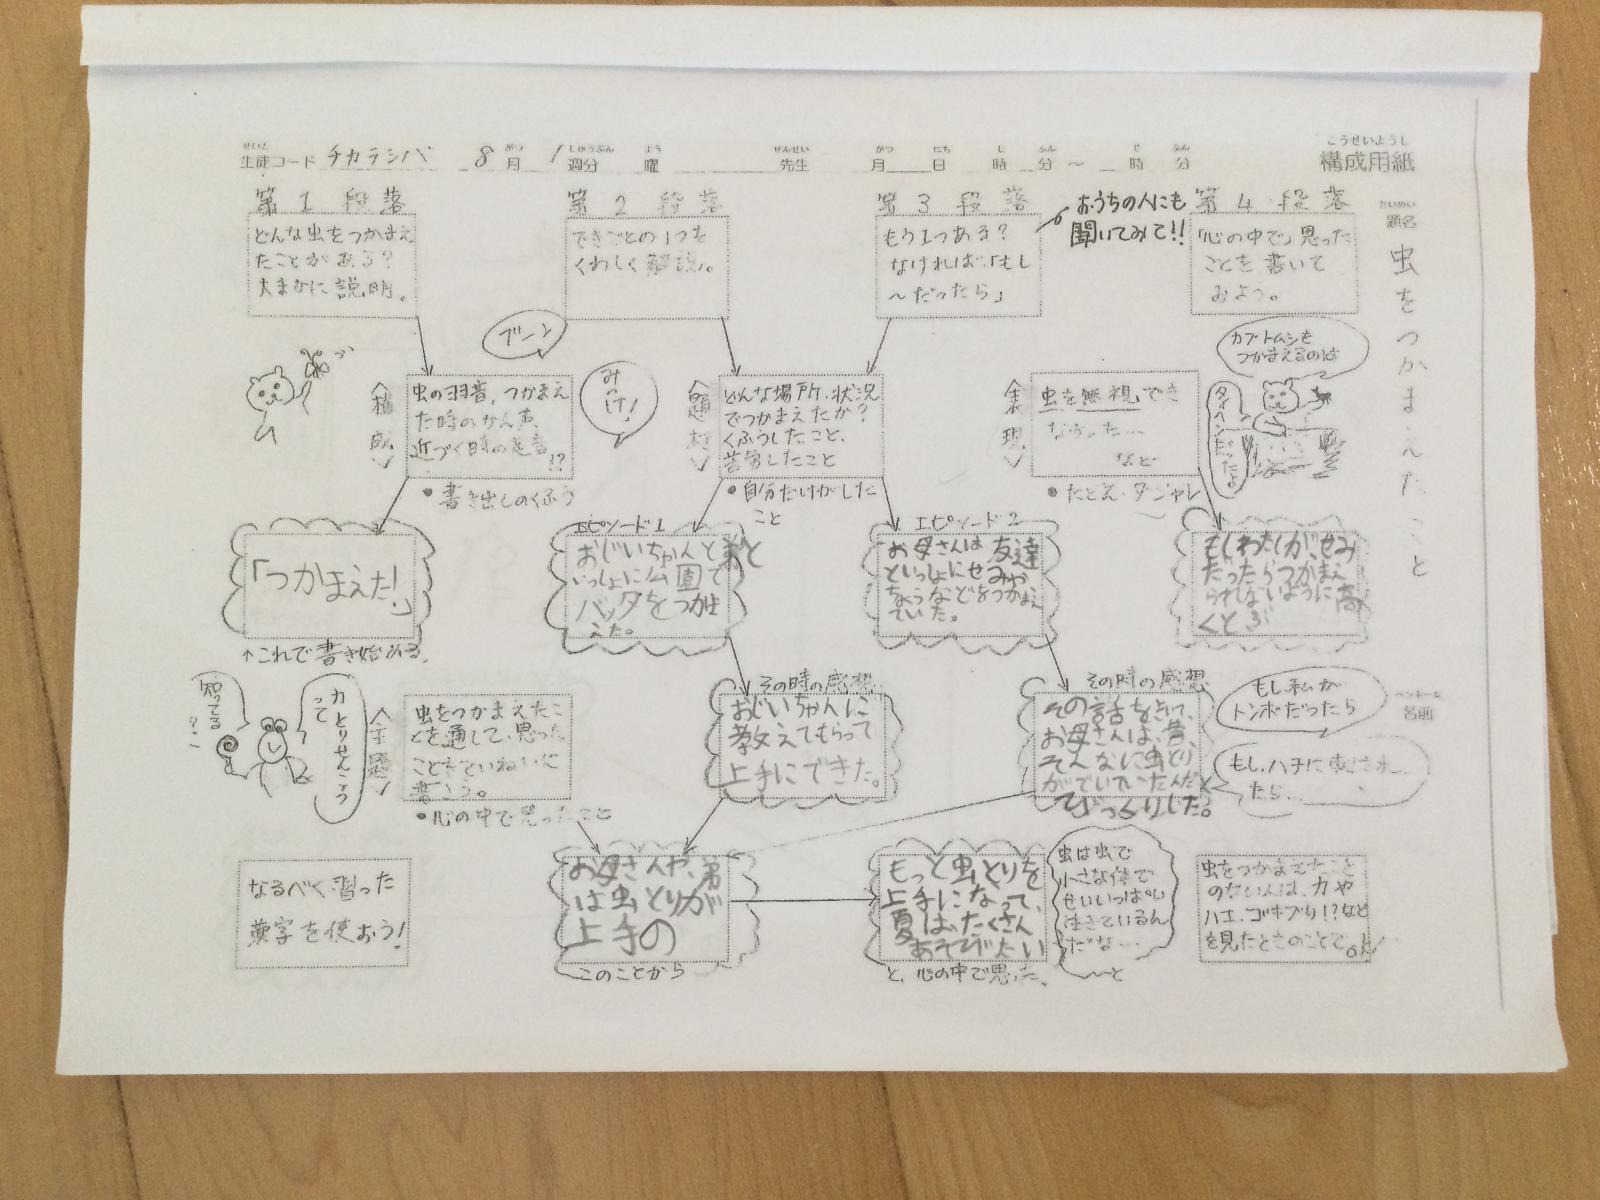 こうせいようし
構成用紙
せいと
生徒コード チカラシバ 8月 1週分 曜 先生 月 日 時 分 ～ 時 分
がつ しゅうぶん よう せんせい がつ にち じ ふん じ ふん
だいめい
題名
虫をつかまえたこと
ペンネーム
名前
第1段落
どんな虫をつかまえ
たことがある?
大まかに説明。
第2段落
できごとの1つを
くわしく解説。
第3段落
もう1つある?
なければ「もし
～だったら」
おうちの人にも
聞いてみて!!
第4段落
「心の中で」思った
ことを書いて
およう。
ブーン
〈構成〉
虫の羽音、つかまえ
た時のなん声、
近づく時の足音!?
・書き出しのくふう
みっけ!
〈題材〉
どんな場所、状況
でつかまえたか?
くふうしたこと、
苦労したこと
・自分だけがした
こと
〈表現〉
虫を無視でき
なかった…
など
・たとえ・ダジャレ
カブトムシを
つかまえるのは
タイヘンだったよ
「つかまえた!」
↑これで書き始める。
エピソード1
おじいちゃんと弟と
いっしょに公園で
バッタをつかま
えた。
エピソード2
お母さんは友達
といっしょにせみや
ちょうなどをつかまえ
ていた。
もしわたしが、せみ
だったらつかまえ
られないように高
くとぶ
知ってる
?
力とりせんこう
って
〈主題〉
虫をつかまえたこ
とを通して、思った
ことをていねいに
書こう。
・心の中で思ったこと
その時の感想
おじいちゃんに
教えてもらって
上手にできた。
その時の感想
その話をきいて、
お母さんは、昔、
そんなに虫とり
がでいていたんだと
てびっくりした。
もし私が
トンボだったら
もし、ハチに刺され
たら…
なるべく習った
漢字を使おう!
お母さんや、弟
は虫とりが
上手の
このことから
もっと虫とりを
上手になって、
夏は、たくさん
あそびたい
と、心の中で思った。
虫は虫で
小さな体で
せいいっぱい
生きているん
だな…
～と
虫をつかまえたこと
のない人は、カや
ハエ、ゴキブリ!?など
を見たときのことでok!